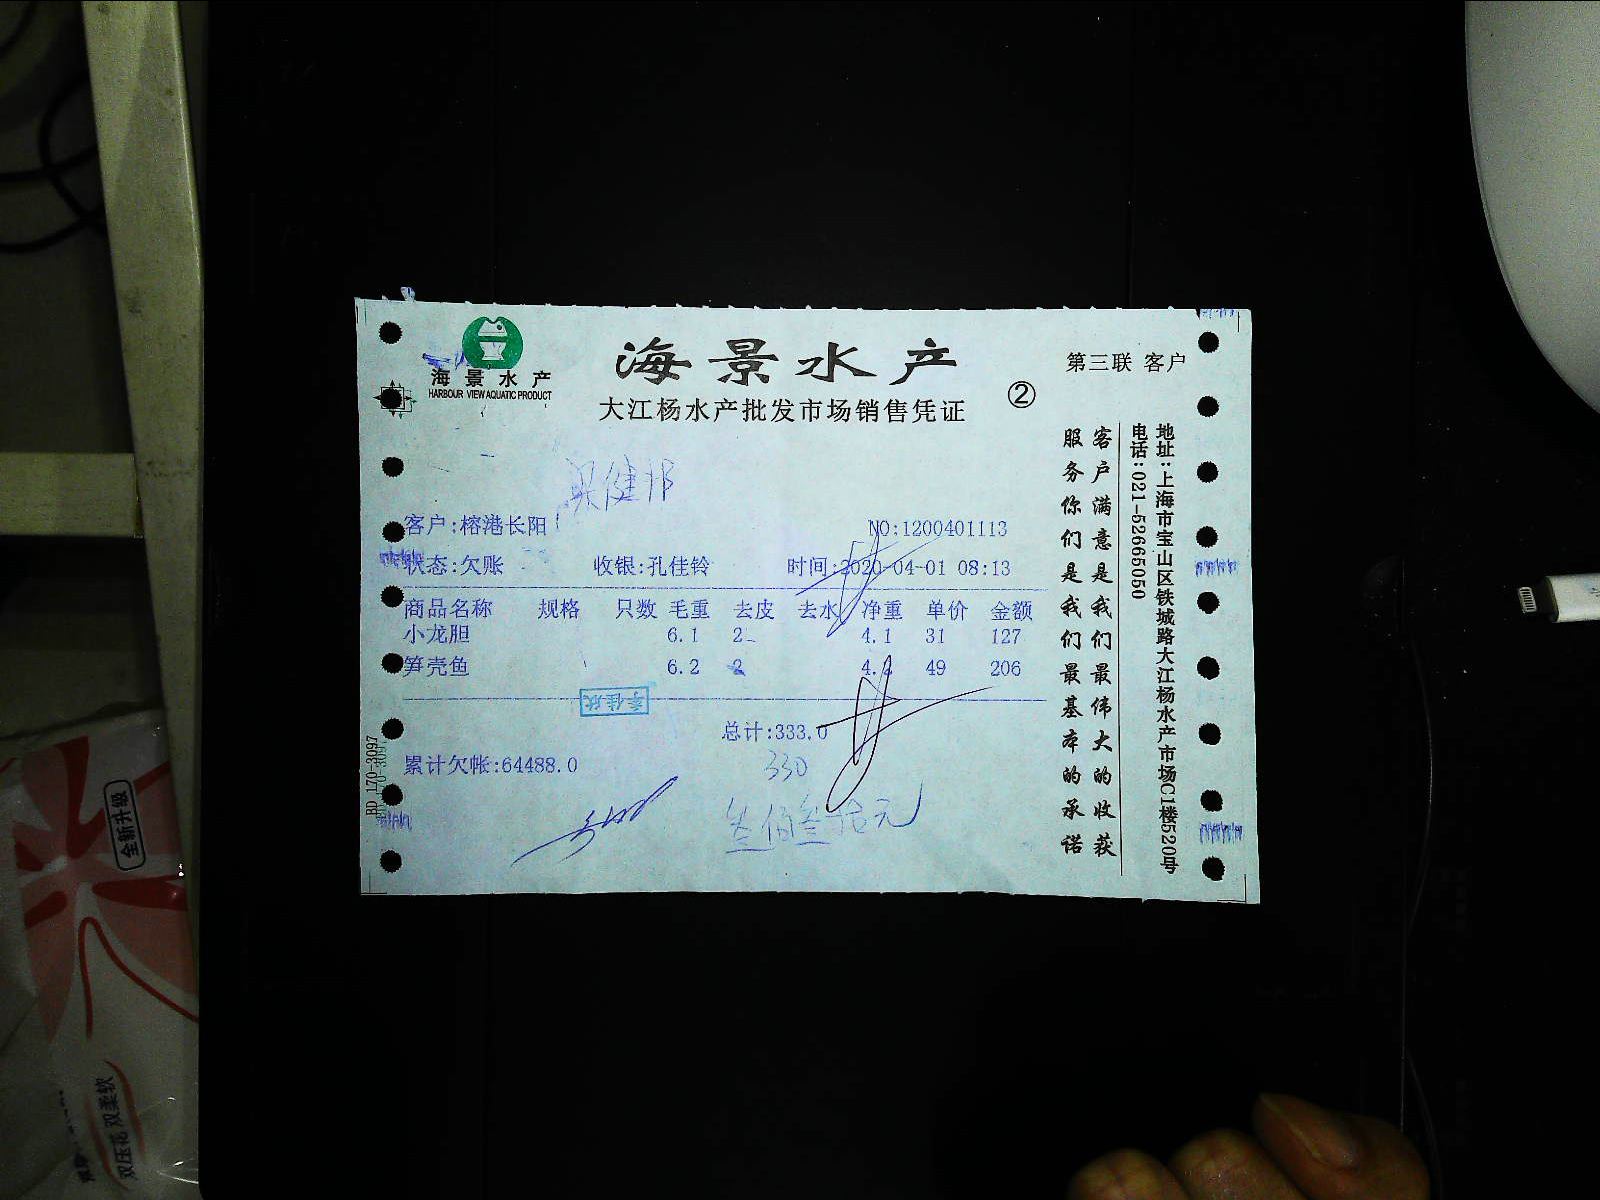 海景水产
HARBOUR VIEW AQUATIC PRODUCT
海景水产
大江杨水产批发市场销售凭证
②
第三联 客户
梁健邦
客户:榕港长阳 NO:1200401113
状态:欠账 收银:孔佳铃 时间:2020-04-01 08:13
商品名称 规格 只数 毛重 去皮 去水 净重 单价 金额
小龙胆 6.1 2 4.1 31 127
笋壳鱼 6.2 2 4.2 49 206
总计:333.0
累计欠帐:64488.0
330
叁佰叁拾元
客户满意是我们最伟大的收获
服务你们是我们最基本的承诺
地址:上海市宝山区铁城路大江杨水产市场C1楼520号
电话:021-52665050
BD 170-3097
全新升级
双压花 双柔软